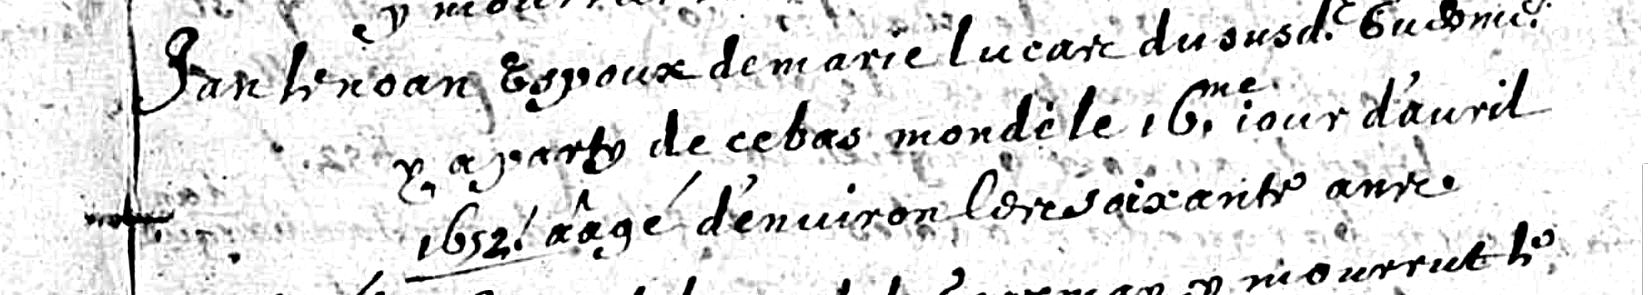 y
Jan henoan Espoux de marie lucar dususd.t
y a party de ce bas monde le 16.me iour d'auril
1652. aagé d'enuiron les soixante anne
y mourrut le